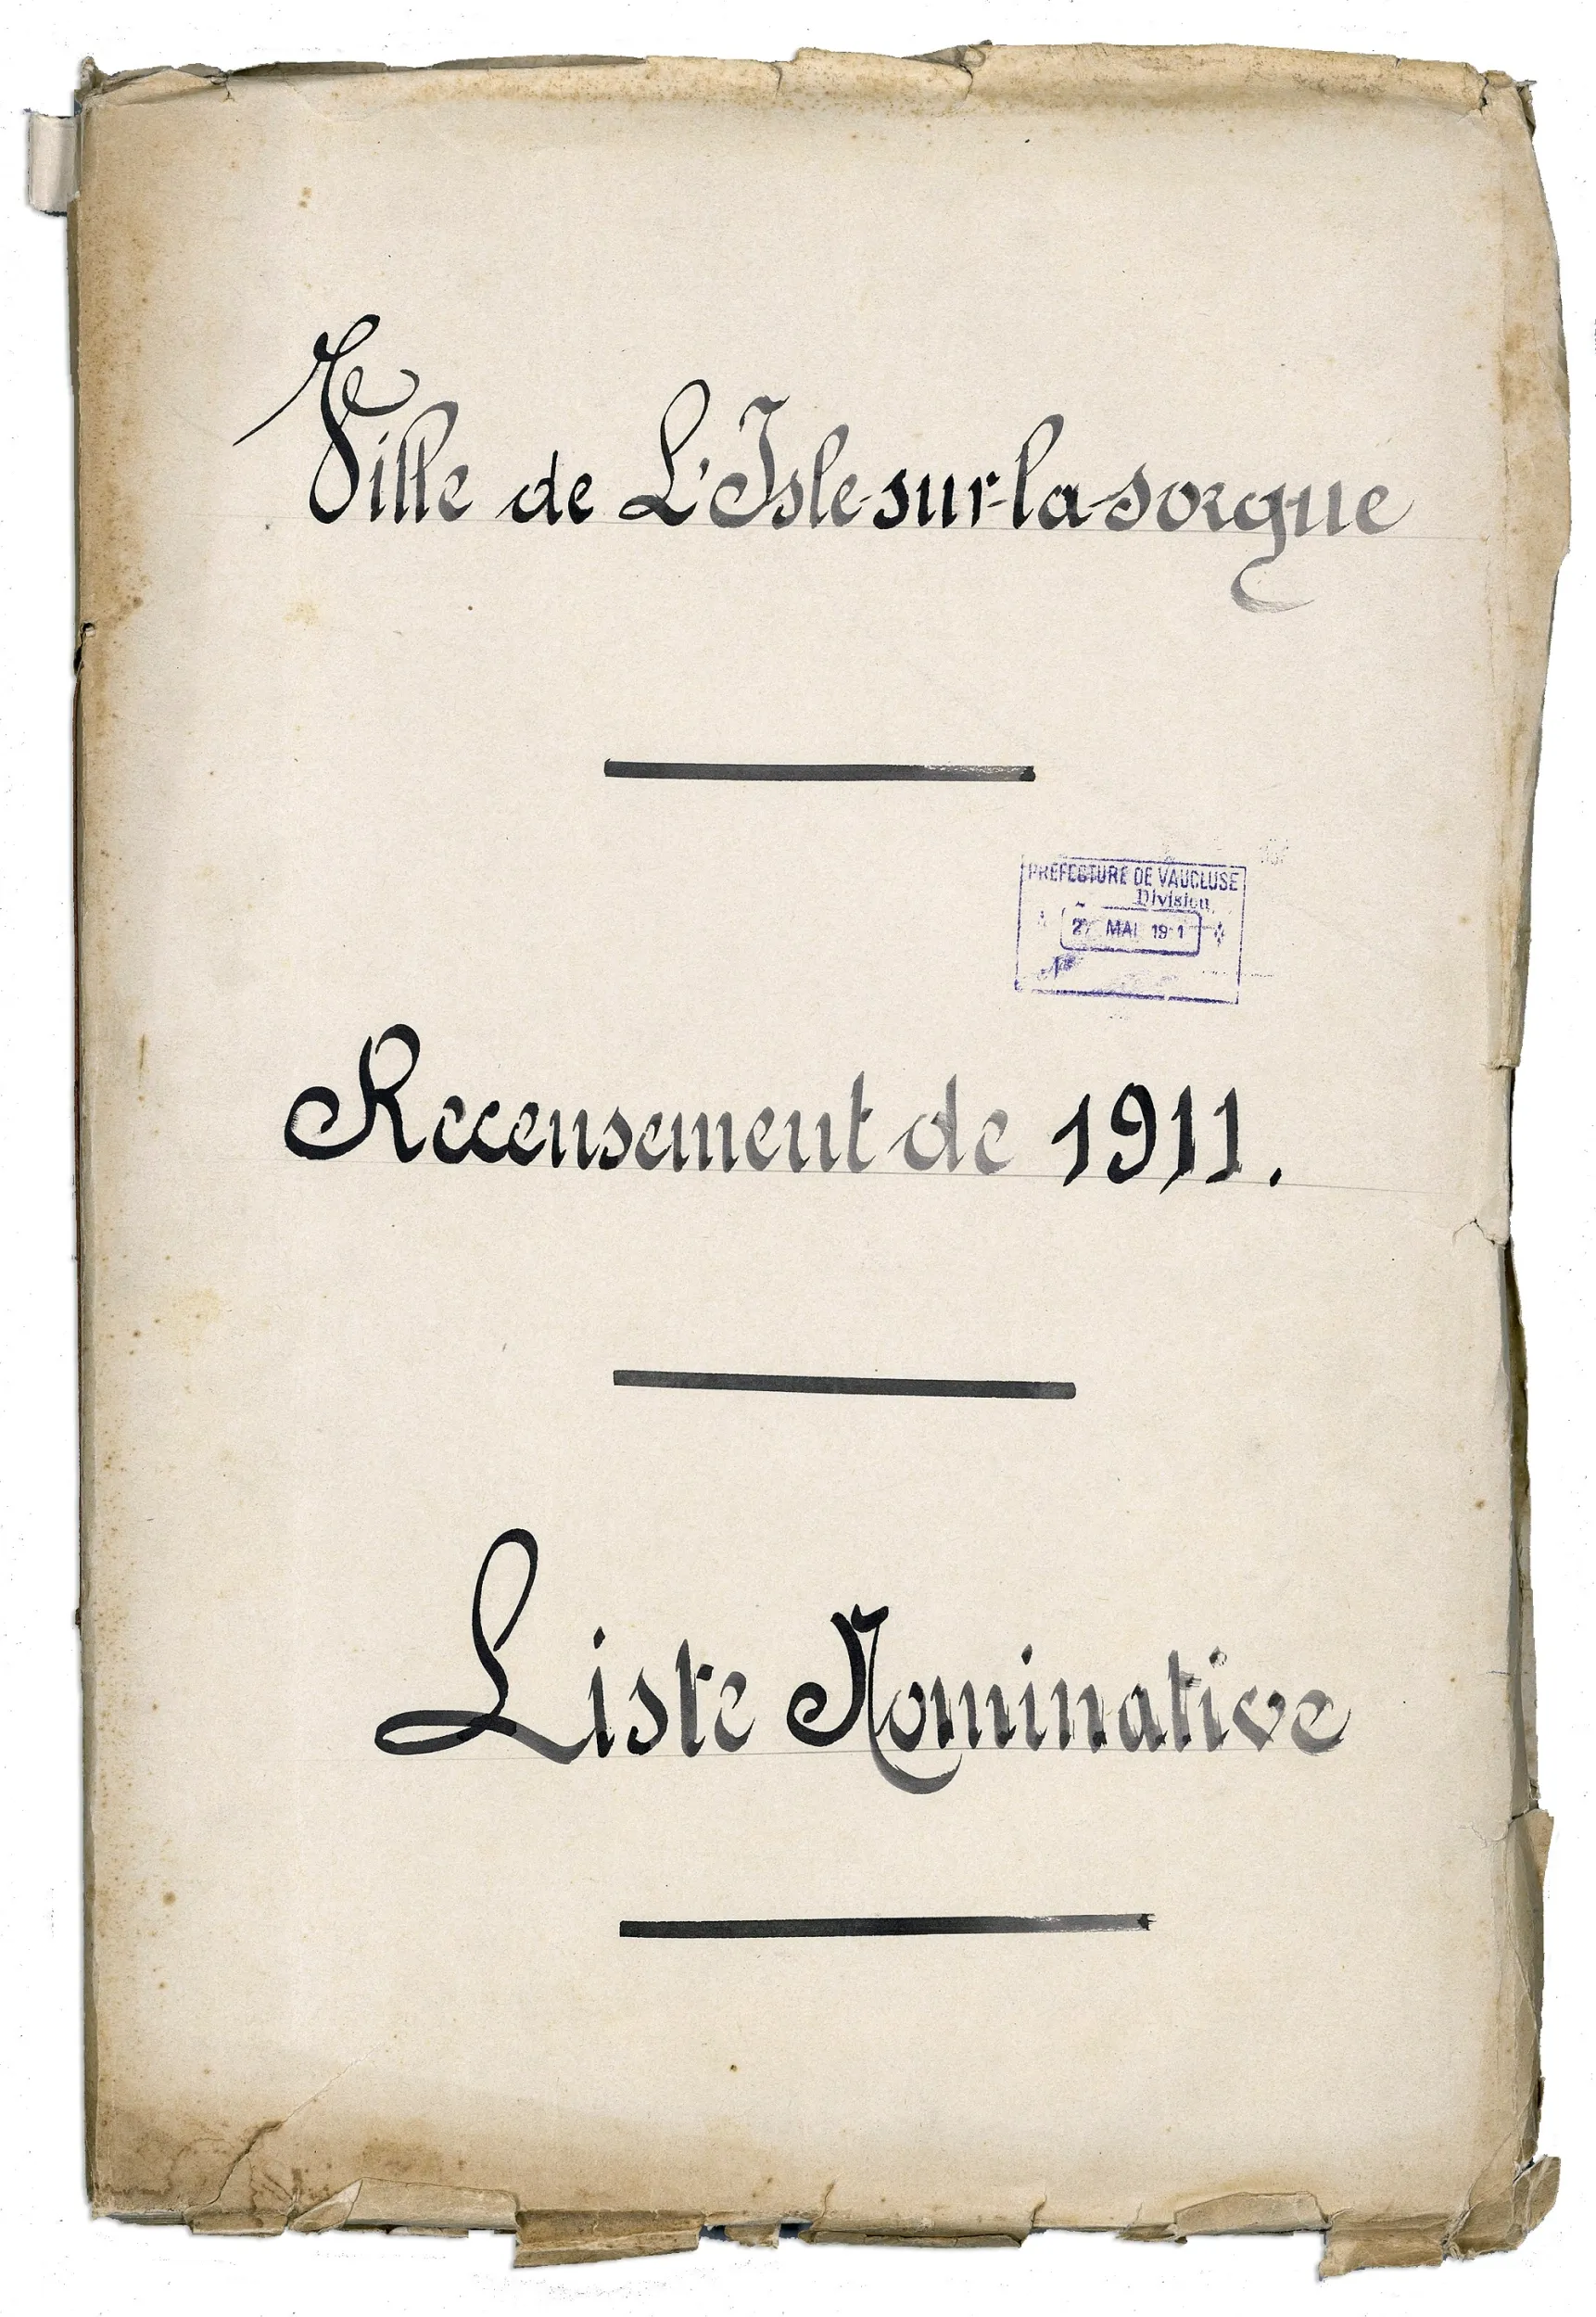 Ville de L'Isle-sur-la-sorgue
PRÉFECTURE DE VAUCLUSE
Division
MAI
N°
Recensement de 1911.
Liste Nominative